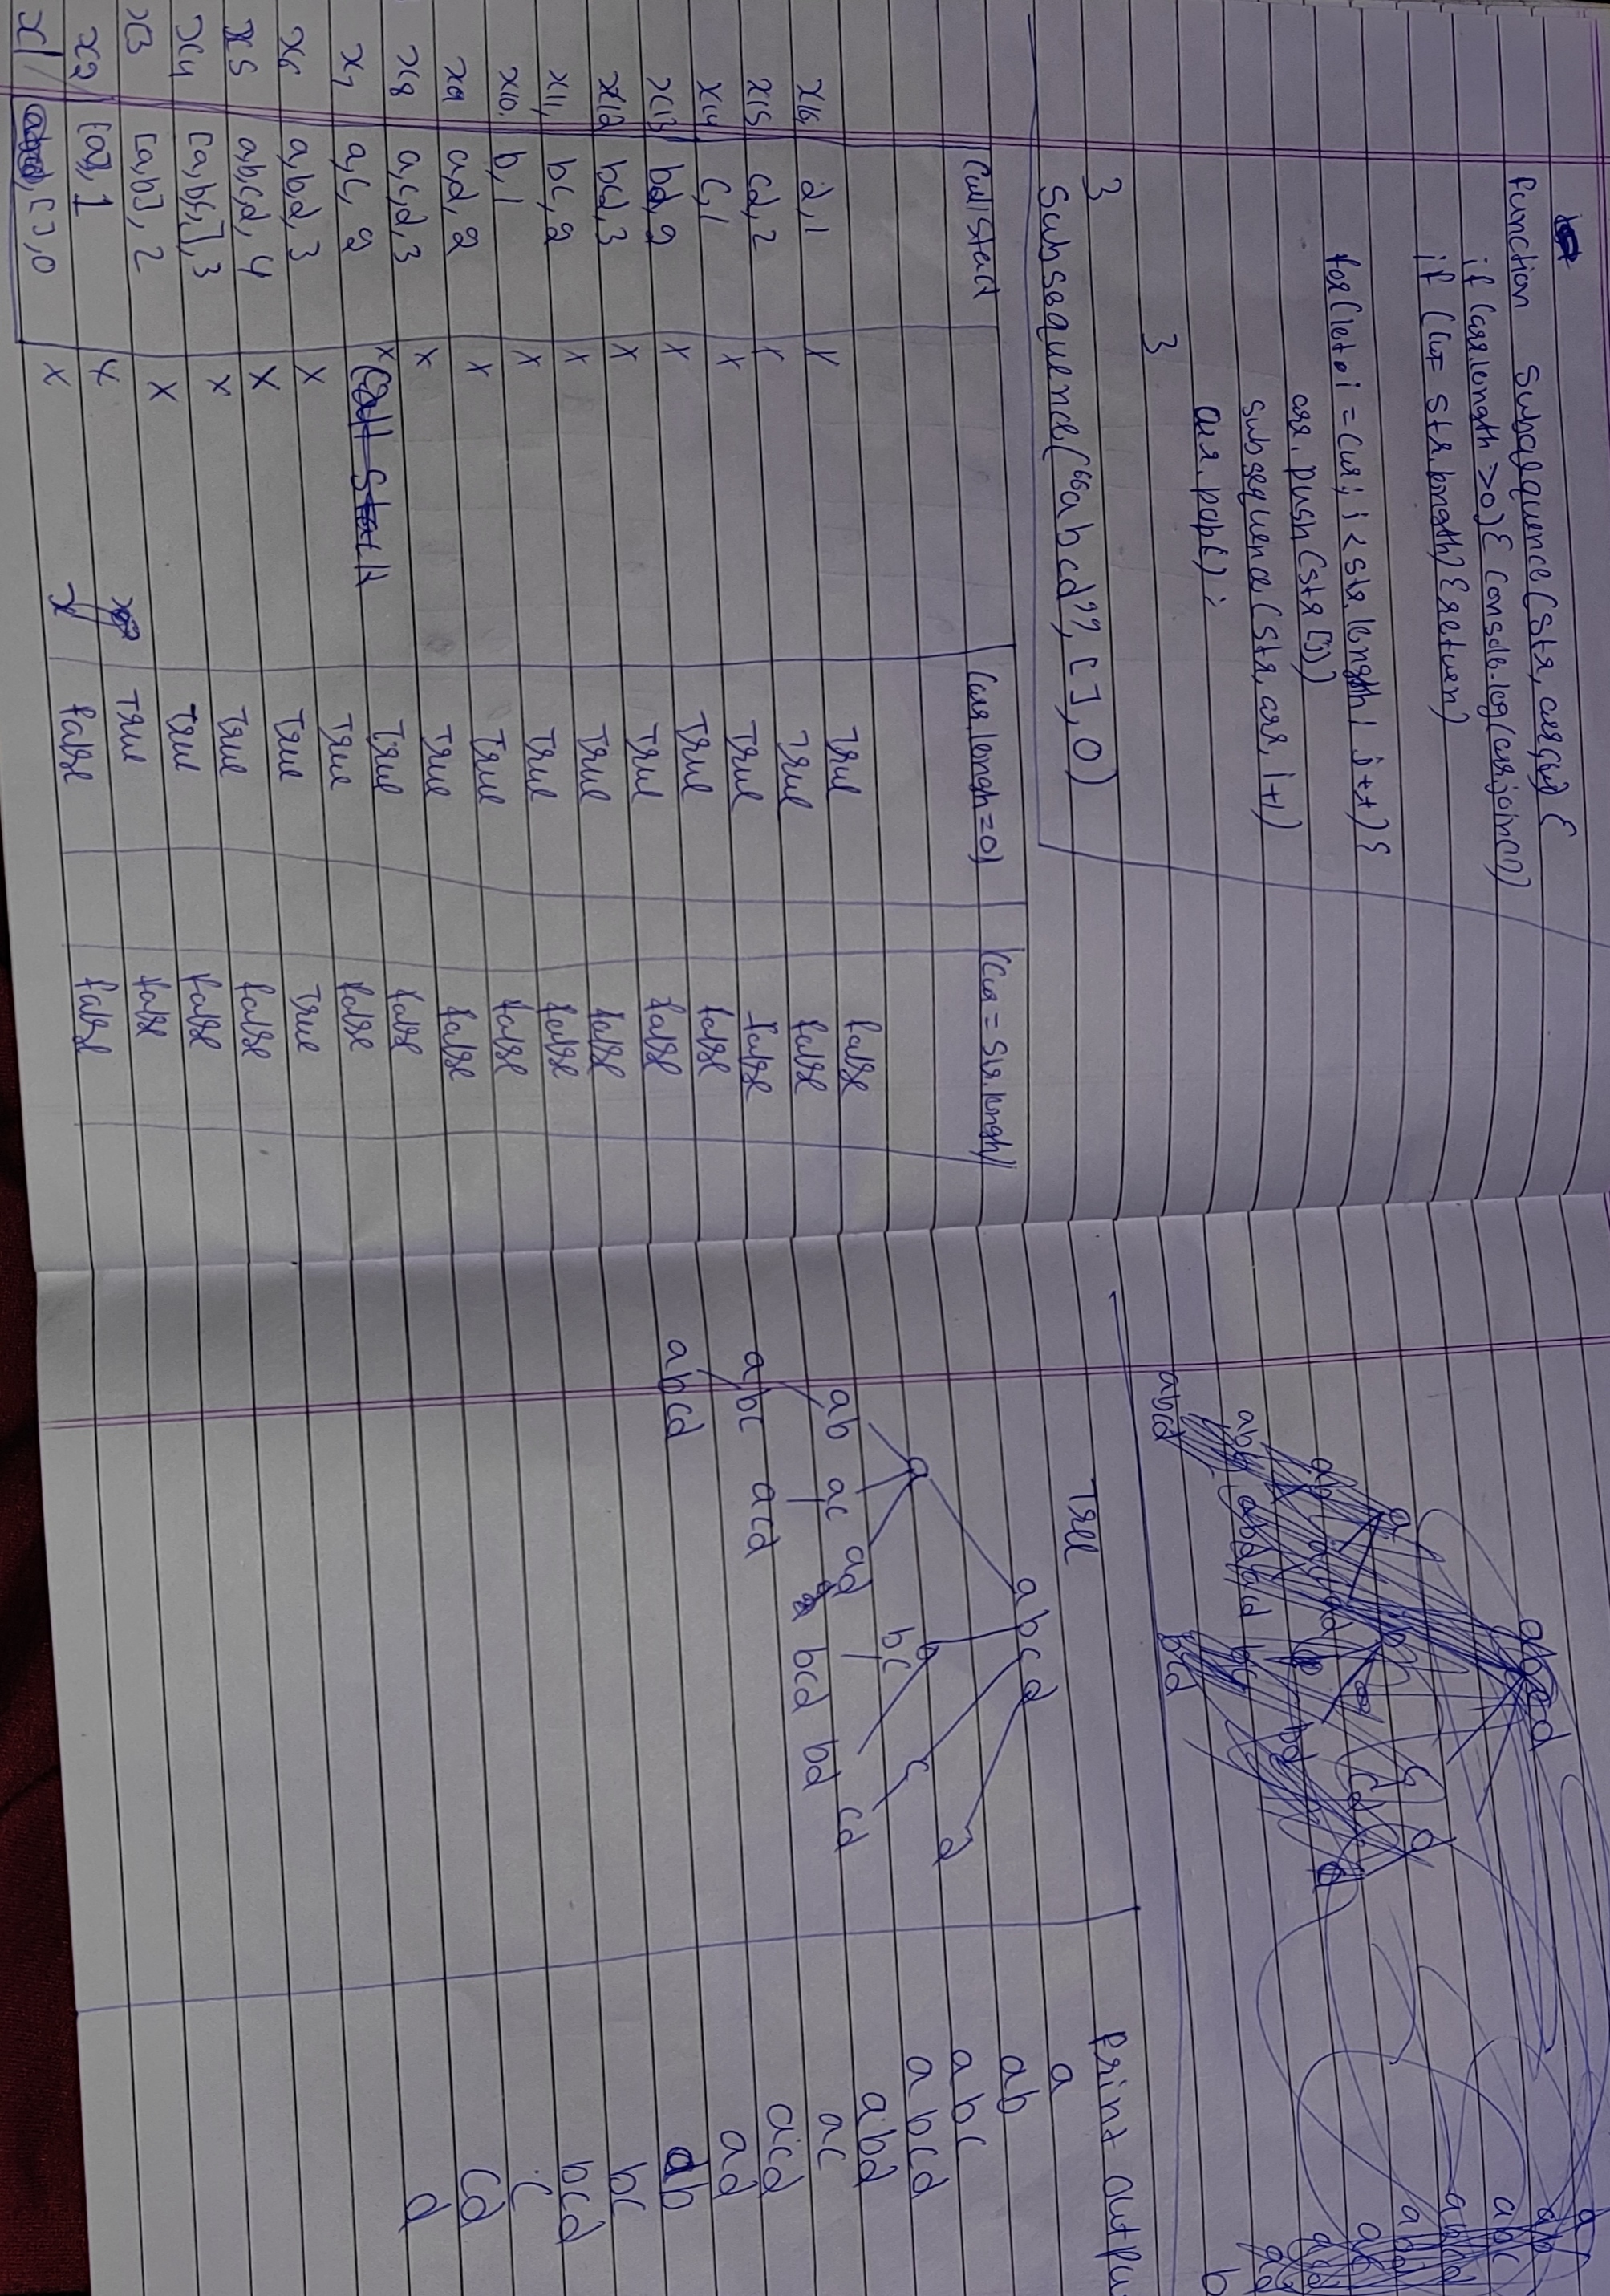 function Subsequence (Str, arr, cur) {
if (arr.length >0) { Console.log(arr.join())
if (cur= str.length) { return }
for (let i = cur; i < str.length; i++) {
arr. push (str [i])
subsequence (str, arr, i+1)
arr. pop();
}
}
Subsequence(“abcd”, [ ], 0)
Call Stack (arr.lengh=0) (Cur = Str.lengh)
True false
x16, d,1 x True false
x15 cd,2 x True false
x14 c,1 x True false
x13 bd,2 x True false
x12 bcd,3 x True false
x11, bc,2 x True false
x10. b,1 x True false
x9 a,d,2 x True false
x8 a,c,d,3 x True false
x7 a,c,2 x Call Stack True false
x6 a,b,d,3 x True True
x5 a,b,c,d,4 x True false
x4 [a,b,c,],3 x True false
x3 [a,b],2 x True false
x2 [a],1 x false false
x1 [],0 x
abcd
a b c d
ab ac ad bd cd d
abc abd acd bc
abcd bcd
a
ab
abc
abcd
abd
ac
acd
ad
b
Tree
a b c d
a b c d
bc
ab ac ad bcd bd cd
abc acd
abcd
Print Outpu
a
ab
abc
abcd
abd
ac
acd
ad
b
bc
bcd
c
cd
d